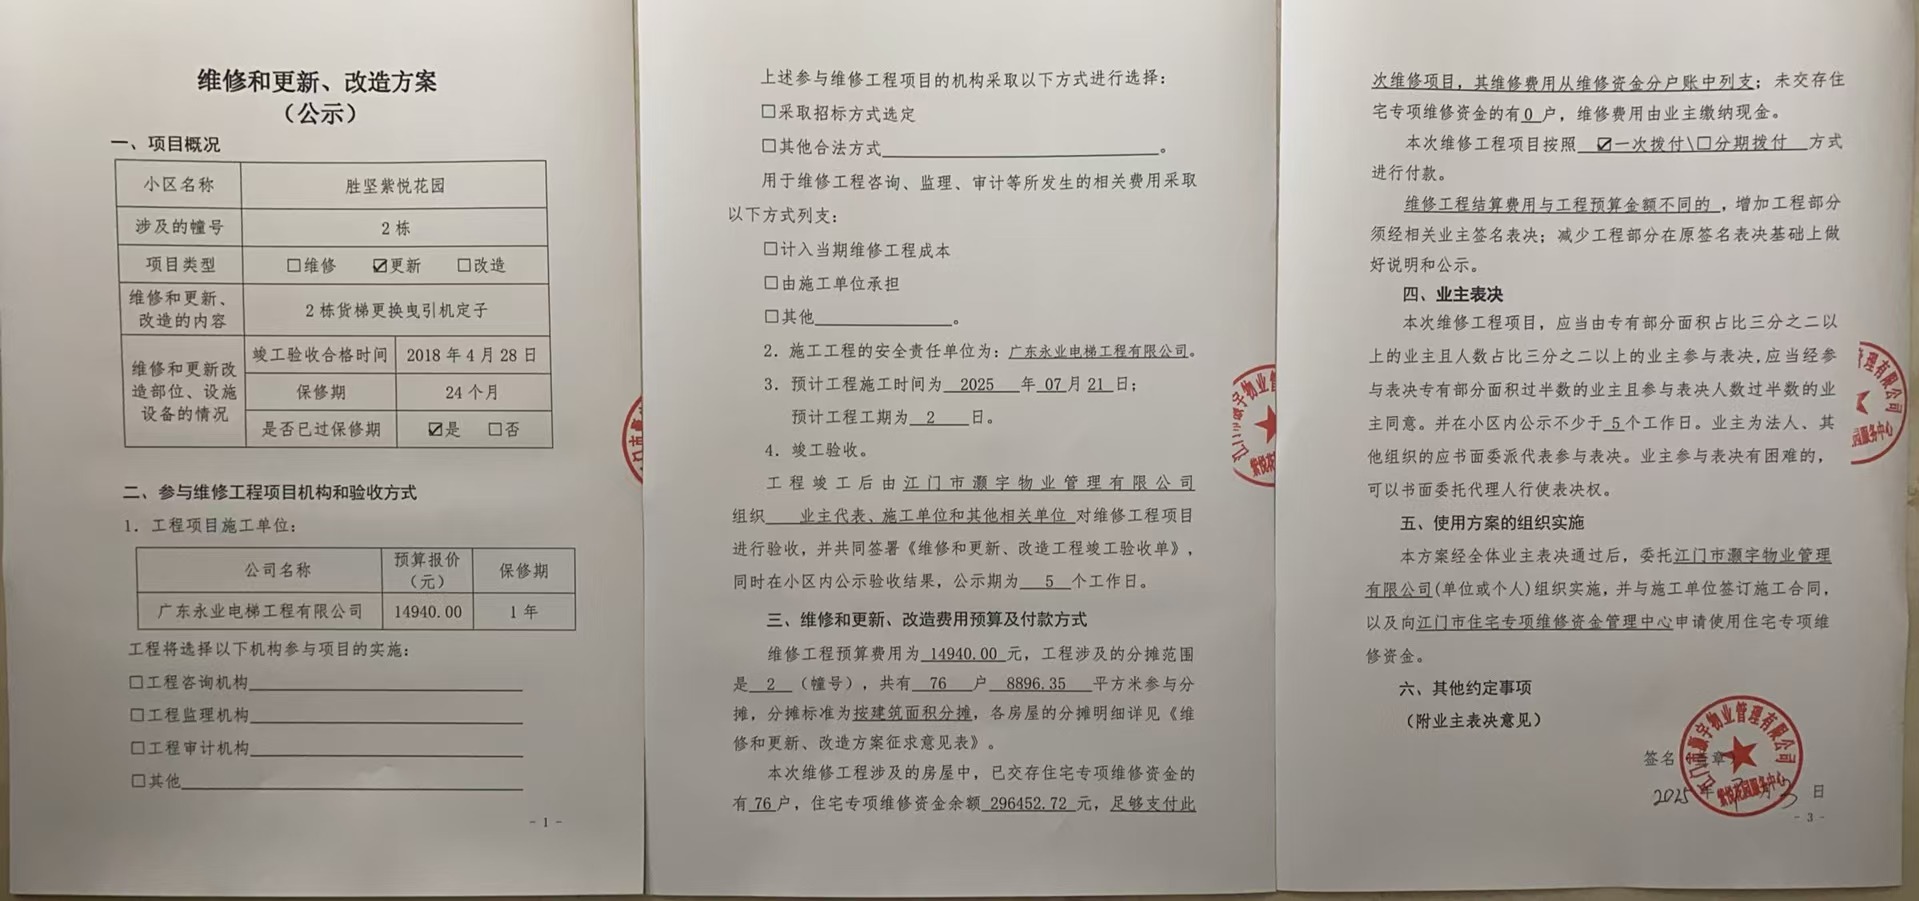 维修和更新、改造方案
（公示）
一、项目概况
小区名称 胜坚紫悦花园
涉及的幢号 2栋
项目类型 □维修 ☑更新 □改造
维修和更新、改造的内容 2栋货梯更换曳引机定子
维修和更新改造部位、设施设备的情况
竣工验收合格时间 2018年4月28日
保修期 24个月
是否已过保修期 ☑是 □否
二、参与维修工程项目机构和验收方式
1．工程项目施工单位：
公司名称 预算报价（元） 保修期
广东永业电梯工程有限公司 14940.00 1年
工程将选择以下机构参与项目的实施：
□工程咨询机构
□工程监理机构
□工程审计机构
□其他
- 1 -
上述参与维修工程项目的机构采取以下方式进行选择：
□采取招标方式选定
□其他合法方式 。
用于维修工程咨询、监理、审计等所发生的相关费用采取
以下方式列支：
□计入当期维修工程成本
□由施工单位承担
□其他 。
2．施工工程的安全责任单位为：广东永业电梯工程有限公司。
3．预计工程施工时间为 2025 年 07 月 21 日；
预计工程工期为 2 日。
4．竣工验收。
工程竣工后由江门市灏宇物业管理有限公司
组织 业主代表、施工单位和其他相关单位 对维修工程项目
进行验收，并共同签署《维修和更新、改造工程竣工验收单》，
同时在小区内公示验收结果，公示期为 5 个工作日。
三、维修和更新、改造费用预算及付款方式
维修工程预算费用为 14940.00 元，工程涉及的分摊范围
是 2 （幢号），共有 76 户 8896.35 平方米参与分
摊，分摊标准为按建筑面积分摊，各房屋的分摊明细详见《维
修和更新、改造方案征求意见表》。
本次维修工程涉及的房屋中，已交存住宅专项维修资金的
有 76 户，住宅专项维修资金余额 296452.72 元，足够支付此
次维修项目，其维修费用从维修资金分户账中列支；未交存住
宅专项维修资金的有 0 户，维修费用由业主缴纳现金。
本次维修工程项目按照 ☑一次拨付\□分期拨付 方式
进行付款。
维修工程结算费用与工程预算金额不同的 ，增加工程部分
须经相关业主签名表决；减少工程部分在原签名表决基础上做
好说明和公示。
四、业主表决
本次维修工程项目，应当由专有部分面积占比三分之二以
上的业主且人数占比三分之二以上的业主参与表决，应当经参
与表决专有部分面积过半数的业主且参与表决人数过半数的业
主同意。并在小区内公示不少于 5 个工作日。业主为法人、其
他组织的应书面委派代表参与表决。业主参与表决有困难的，
可以书面委托代理人行使表决权。
五、使用方案的组织实施
本方案经全体业主表决通过后，委托江门市灏宇物业管理
有限公司(单位或个人)组织实施，并与施工单位签订施工合同，
以及向江门市住宅专项维修资金管理中心申请使用住宅专项维
修资金。
六、其他约定事项
（附业主表决意见）
江门市灏宇物业管理有限公司
紫悦花园服务中心
签名 章
2025 年 月 3 日
- 3 -